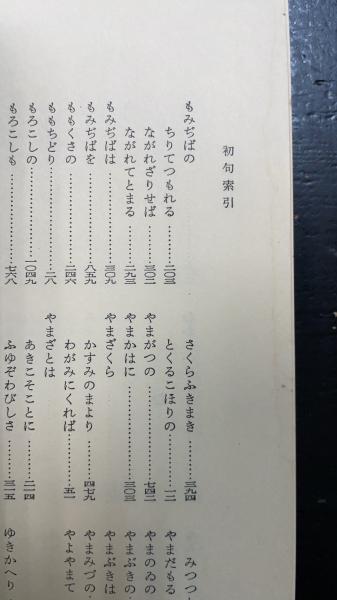 初句索引
もみぢばの
ちりてつもれる…………二〇三
ながれざりせば…………三〇二
ながれてとまる…………二九三
もみぢばは………………三〇九
もみぢばを………………八五九
ももくさの………………二四六
ももちどり………………二八
もろこしの………………一〇四九
もろこしも………………七六八
さくらふきまき…………三九四
とくるこほりの…………一二
やまがつの………………七四二
やまかはに………………三〇三
やまざくら
かすみのまより…………四七九
わがみにくれば…………五一
やまざとは
あきこそことに…………二一四
ふゆぞわびしさ…………三一五
みつつ
やまだもる
やまのゐの
やまぶきの
やまぶきは
やまみづの
やよやまて
ゆきかへり